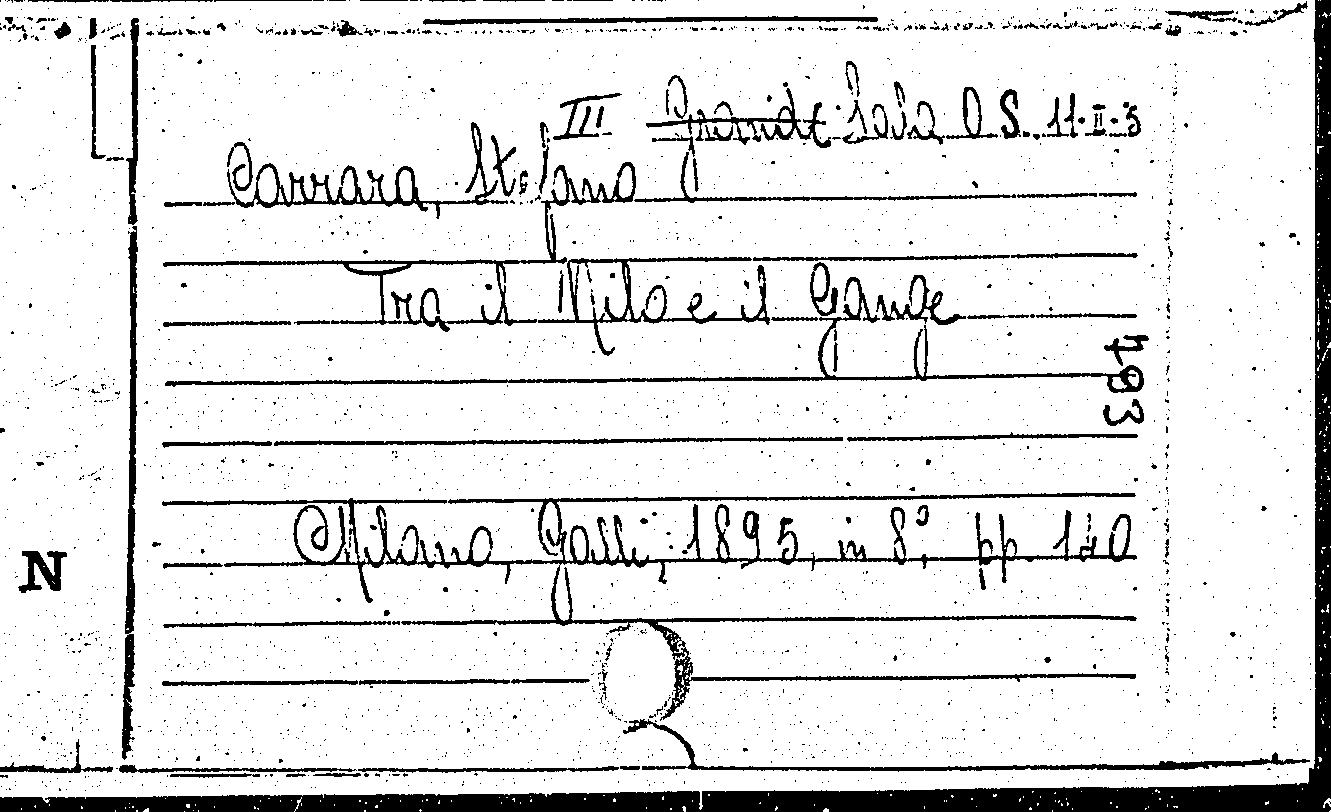 III Grande Sala O S. 11-II-3
Carrara, Stefano
Tra il Nilo e il Gange
493
Milano, Galli, 1895, in 8° pp. 140
N